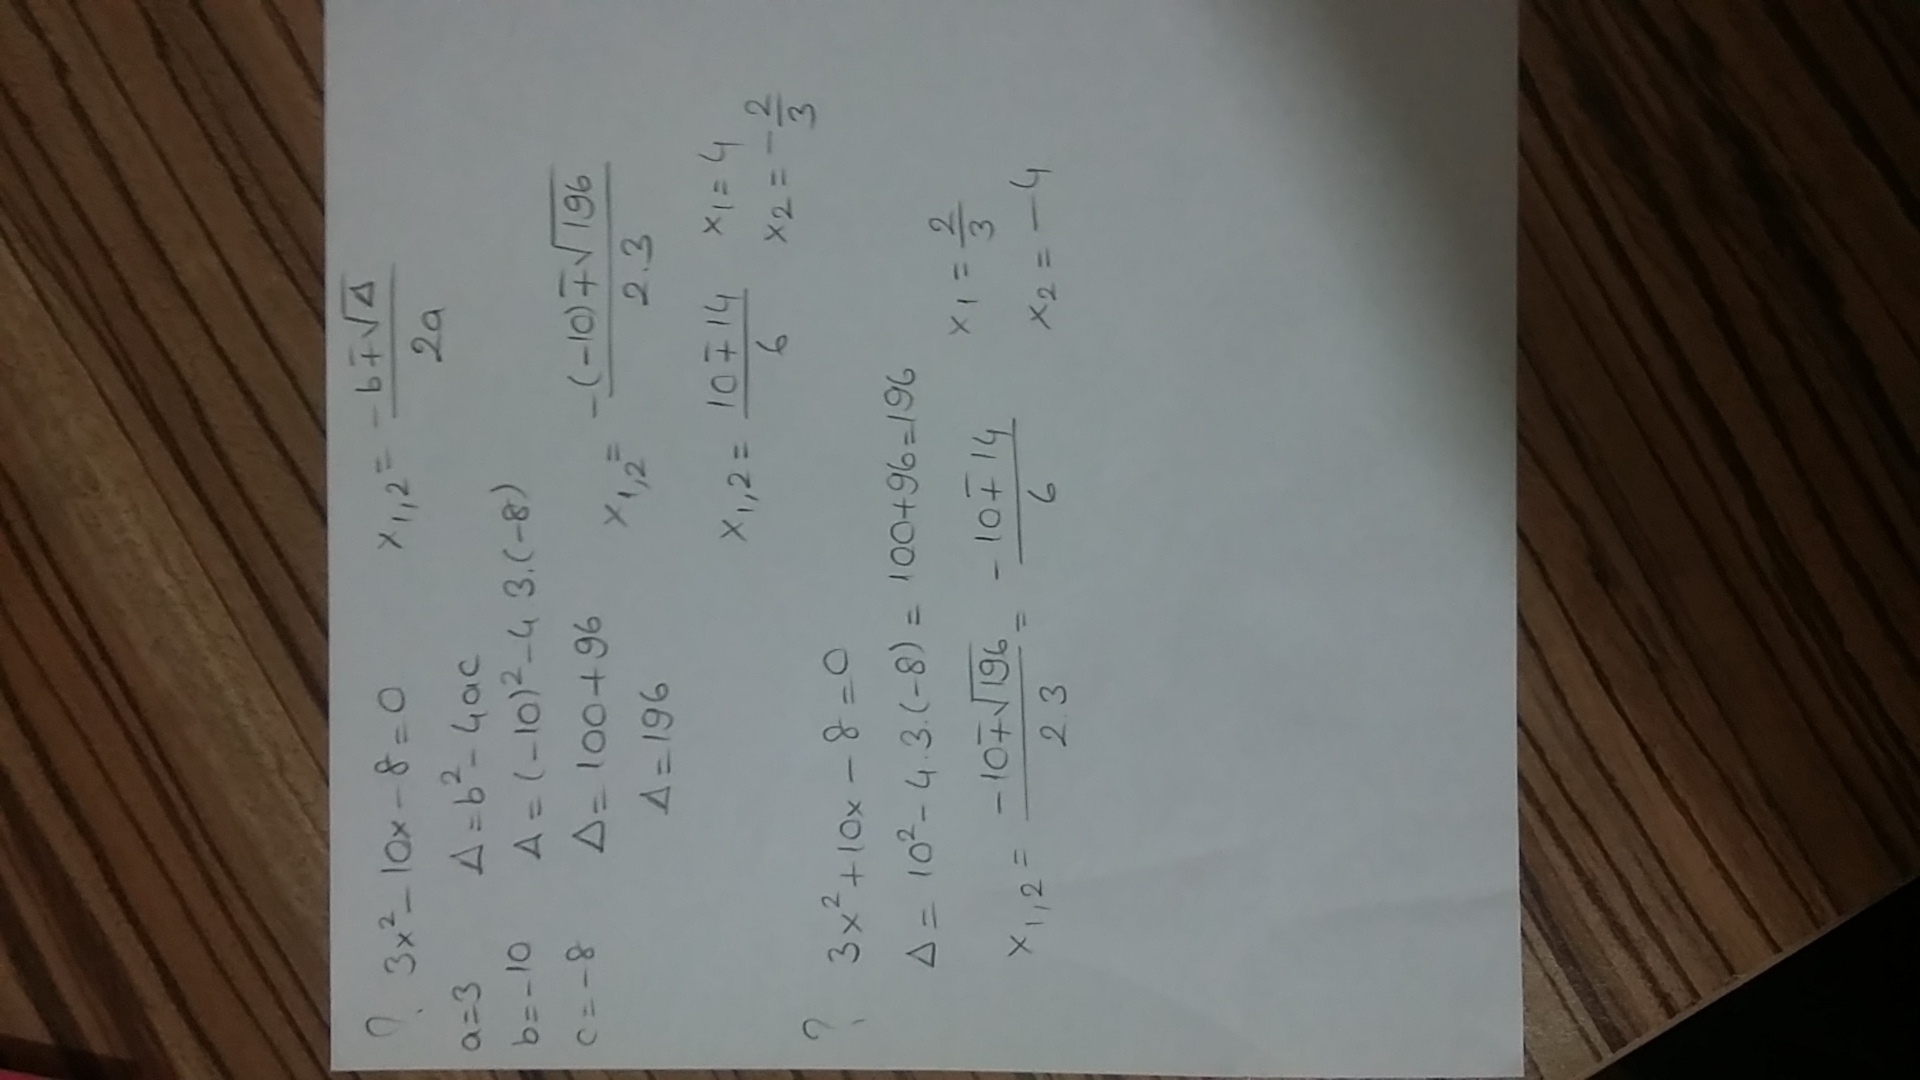 ? 3x² - 10x - 8 = 0    x₁,₂ = (-b ∓ √Δ) / 2a
a = 3    Δ = b² - 4ac
b = -10    Δ = (-10)² - 4 3.(-8)
c = -8    Δ = 100 + 96    x₁,₂ = (-(-10) ∓ √196) / 2.3
Δ = 196
x₁,₂ = (10 ∓ 14) / 6    x₁ = 4
x₂ = -2/3
? 3x² + 10x - 8 = 0
Δ = 10² - 4.3.(-8) = 100 + 96 = 196
x₁,₂ = (-10 ∓ √196) / 2.3 = (-10 ∓ 14) / 6    x₁ = 2/3
x₂ = -4